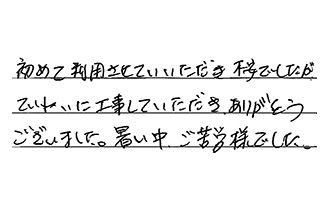 初めて利用させていいただき不安でしたが
ていねいに工事していただきありがとう
ございました。暑い中、ご苦労様でした。